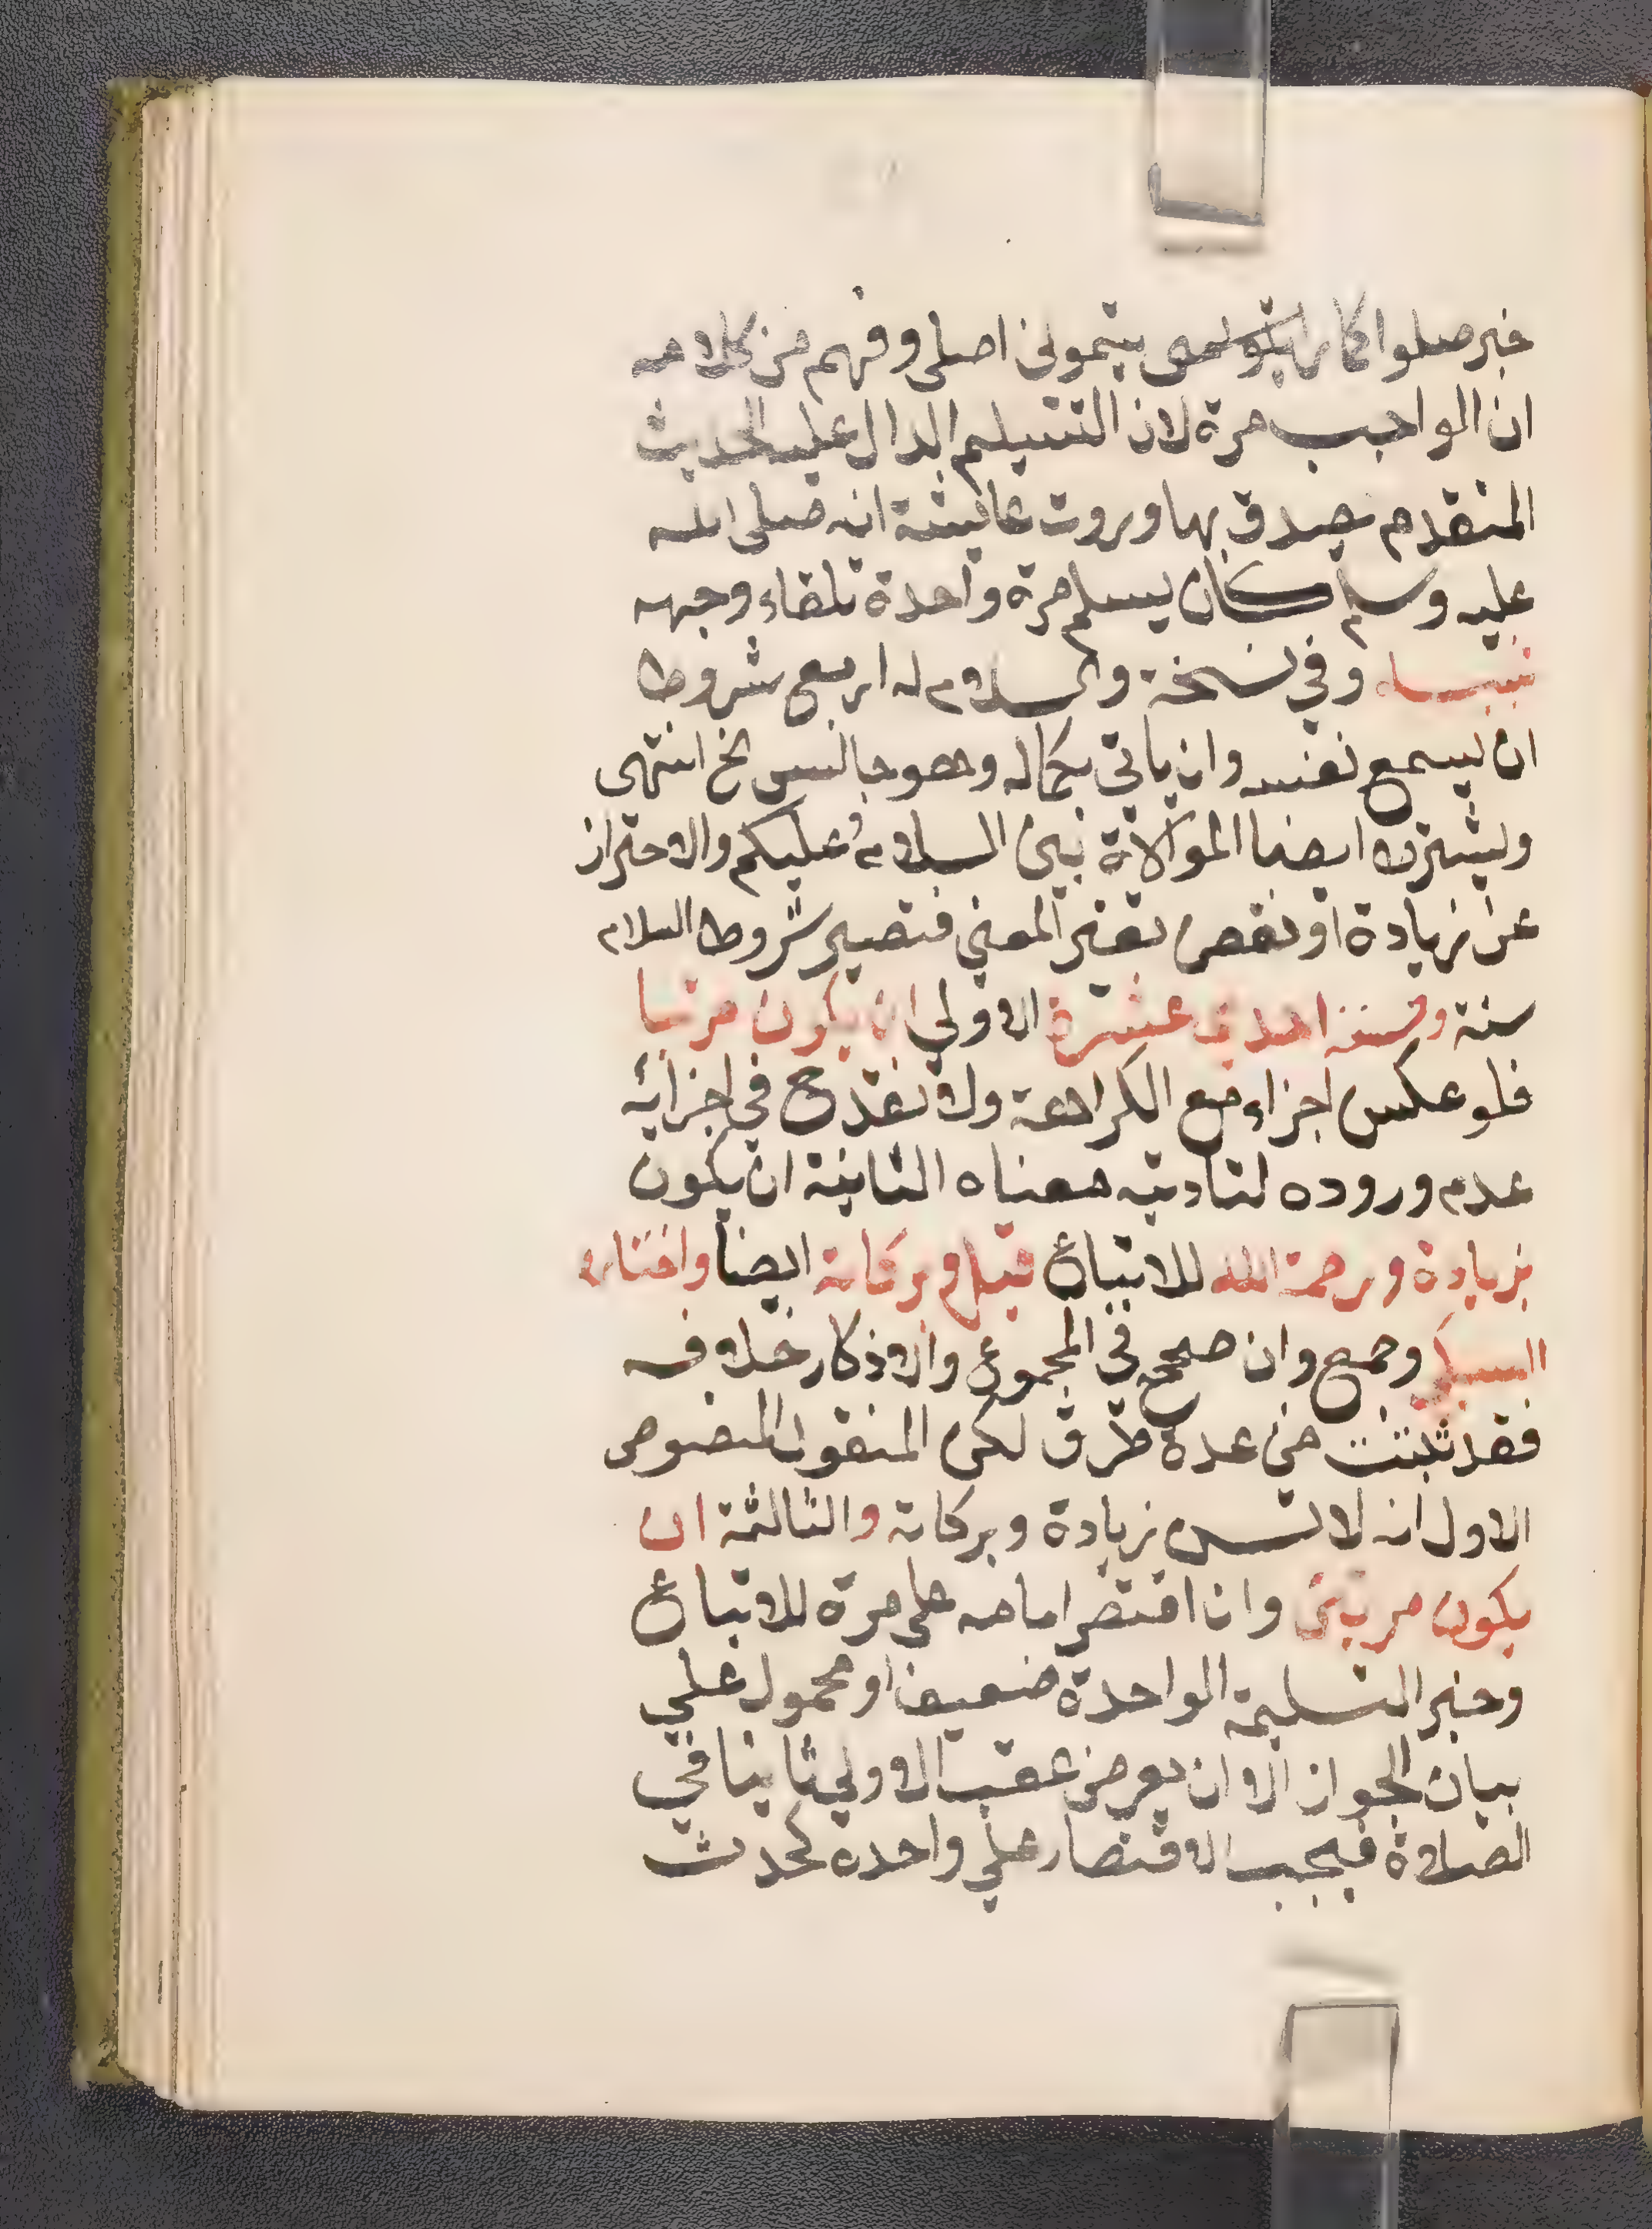 خبر صلوا كما رايتموني اصلي وفهم من كلامه
ان الواجب مرة لان التسليم الدال عليه الحديث
المتقدم يصدق بها وروت عائشة انه صلى الله
عليه وسلم كان يسلم مرة واحدة تلقاء وجهه
تنبيه وفي نسخة والسلام له اربع شروط
ان يسمع نفسه وان ياتي بكماله وهو جالس الخ انتهى
ويشترط ايضا الموالاة بين السلام وعليكم والاحتراز
عن زيادة او نقص يغير المعني فتصير شروط السلام
ستة وسننه احدي عشرة الاولي ان يكون مرتبا
فلو عكس اجزاء مع الكراهة ولا يقدح في اجزائه
عدم وروده لتاديته معناه الثانية ان يكون
بزيادة ورحمة الله للاتباع قيل وبركاته ايضا واختاره
السبكي وجمع وان صحح في المجموع والاذكار خلافه
فقد ثبتت من عدة طرق لكن المنقول المنصوص
الاول انه لا تسن زيادة وبركاته والثالثة ان
يكون مرتين وان اقتصر امامه علي مرة للاتباع
وخبر التسليمة الواحدة ضعيف او محمول علي
بيان الجواز الا ان يعرض عقب الاولي ثانيا في
الصلاة فيجب الاقتصار علي واحدة كحدث